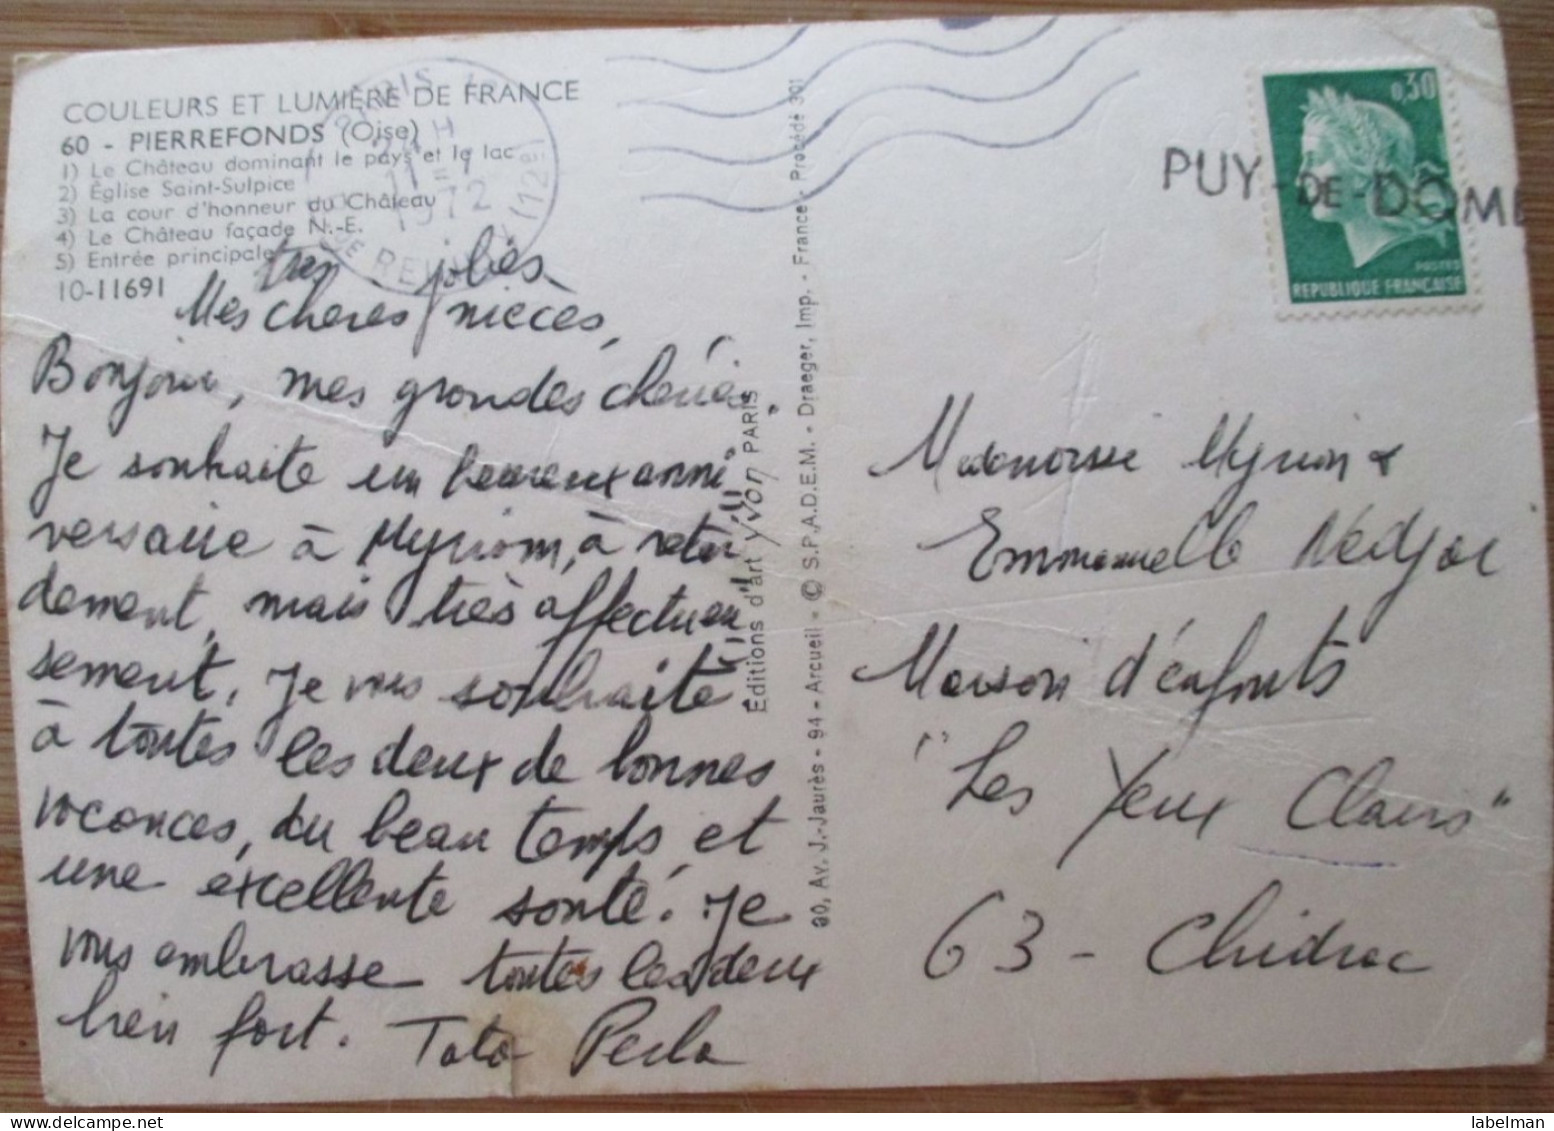 COULEURS ET LUMIÈRE DE FRANCE
60 - PIERREFONDS (Oise)
1) Le Château dominant le pays et le lac
2) Église Saint-Sulpice
3) La cour d'honneur du Château
4) Le Château façade N.-E.
5) Entrée principale
10-11691
PARIS
11 - 7
1972
(12e)
très jolies
Mes chères nièces,
Bonjour, mes grandes chéries.
Je souhaite un heureux anni
versaire à Myriam, à retar
dement, mais très affectueu
sement. Je vous souhaite
à toutes les deux de bonnes
vacances, du beau temps et
une excellente santé. Je
vous embrasse toutes les deux
bien fort. Tata Perla
Éditions d'art yvon PARIS
90, Av. J.-Jaurès - 94 - Arcueil - © S.P.A.D.E.M. - Draeger, Imp. - France - Procédé 301
0,30
POSTES
REPUBLIQUE FRANÇAISE
PUY-DE-DÔME
Myriam &
Emmanuelle Nedjar
Maison d'enfants
"Les Yeux Clairs"
63 - Chidrac
labelman